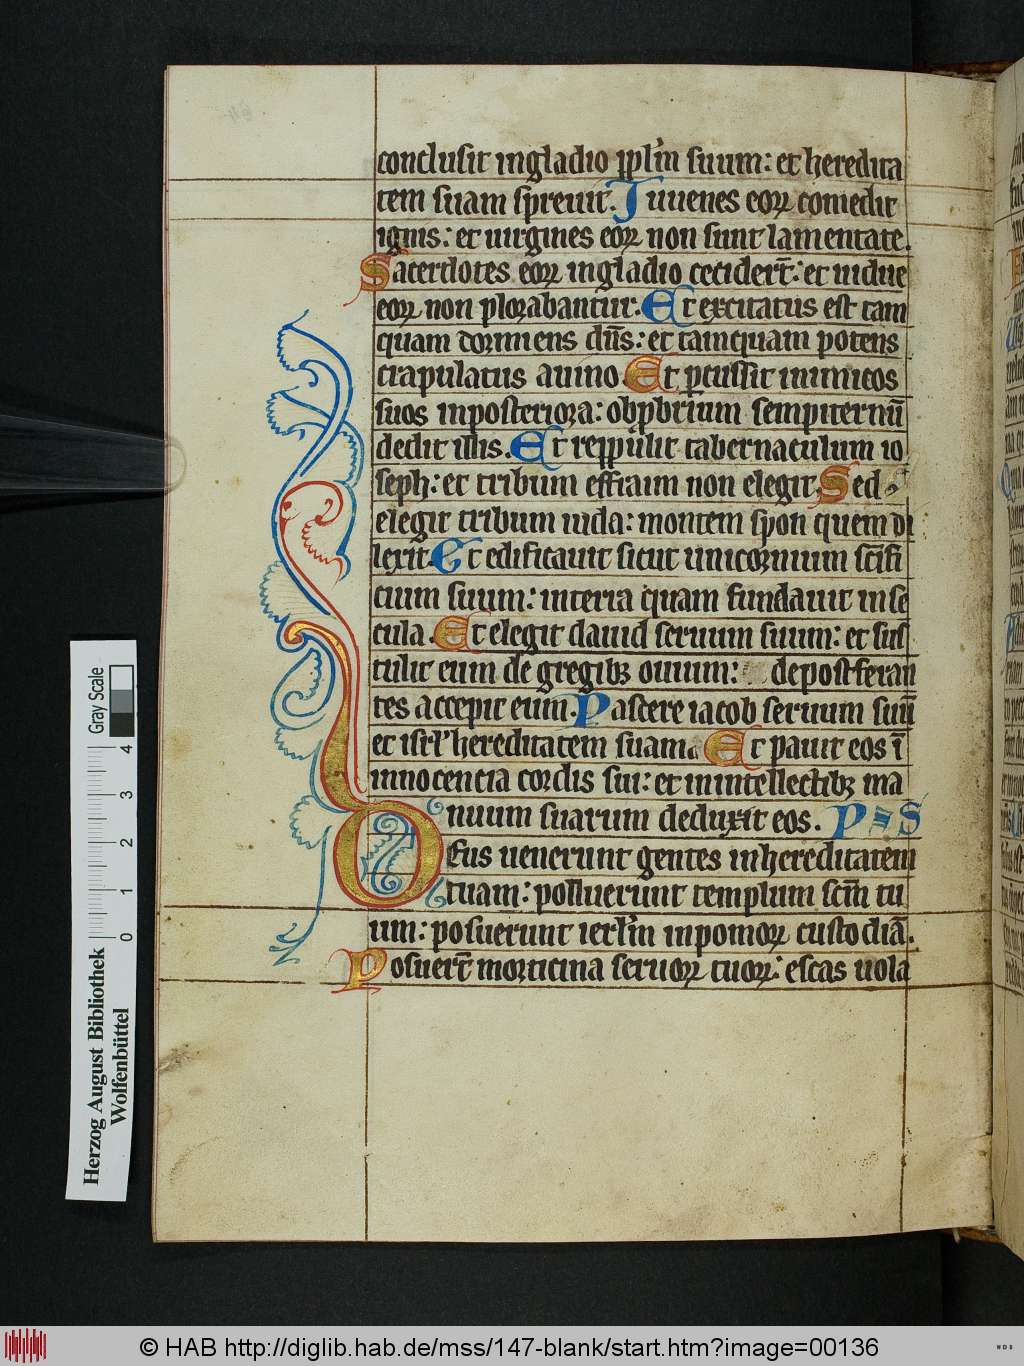 conclusit ingladio ppl̄m suum: et heredita
tem suam spreuit. Iuuenes eoꝝ comedit
ignis: et uirgines eoꝝ non sunt lamentate.
Sacerdotes eoꝝ ingladio ceciderт̄: et uidue
eoꝝ non plorabantur. Et excitatus est tam
quam dormiens dn̄s: et tamquam potens
crapulatus auino Et ꝑcussit inimicos
suos inposteriora: obꝓbrium sempiternū
dedit illis. Et reppulit tabernaculum io
seph: et tribum effraim non elegit. Sed
elegit tribum iuda: montem syon quem di
lexit. Et edificauit sicut unicornium sc̄ifi
cium suum: interra quam fundauit inse
cula. Et elegit dauid seruum suum: et sus
tulit eum de gregibꝫ ouium: depostfetan
tes accepit eum. Pascere iacob seruum suū
et isrl̄ hereditatem suam. Et pauit eos ī
innocencia cordis sui: et inintellectibꝫ ma
nuum suarum deduxit eos. PS
Deus uenerunt gentes inhereditatem
tuam: polluerunt templum sc̄m tu
um: posuerunt ierl̄m inpomoꝝ custodiā.
Posuert̄ morticina seruoꝝ tuoꝝ: escas uola
Gray Scale
4
3
2
1
0
Herzog August Bibliothek
Wolfenbüttel
© HAB http://diglib.hab.de/mss/147-blank/start.htm?image=00136